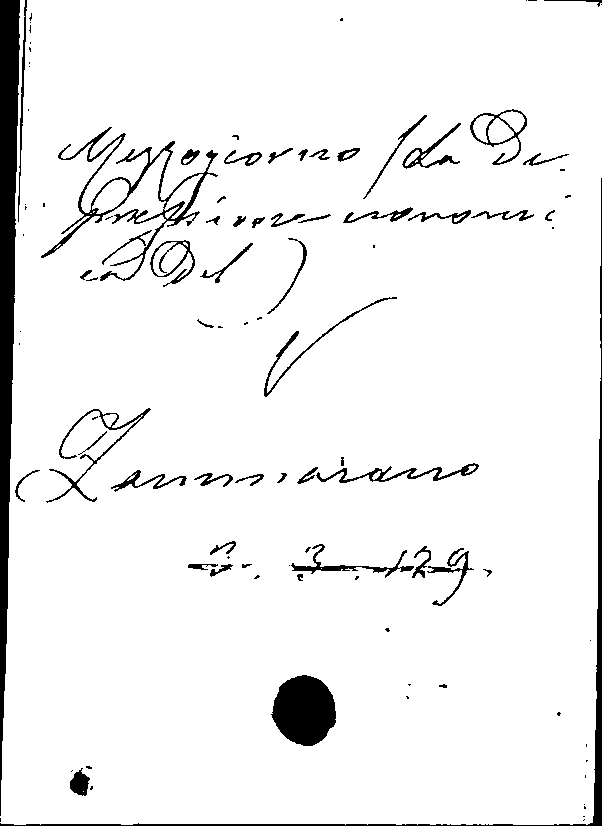 Mezzogiorno (La De-
pressione economi
ca del)
V
Zammarano
3. 129.